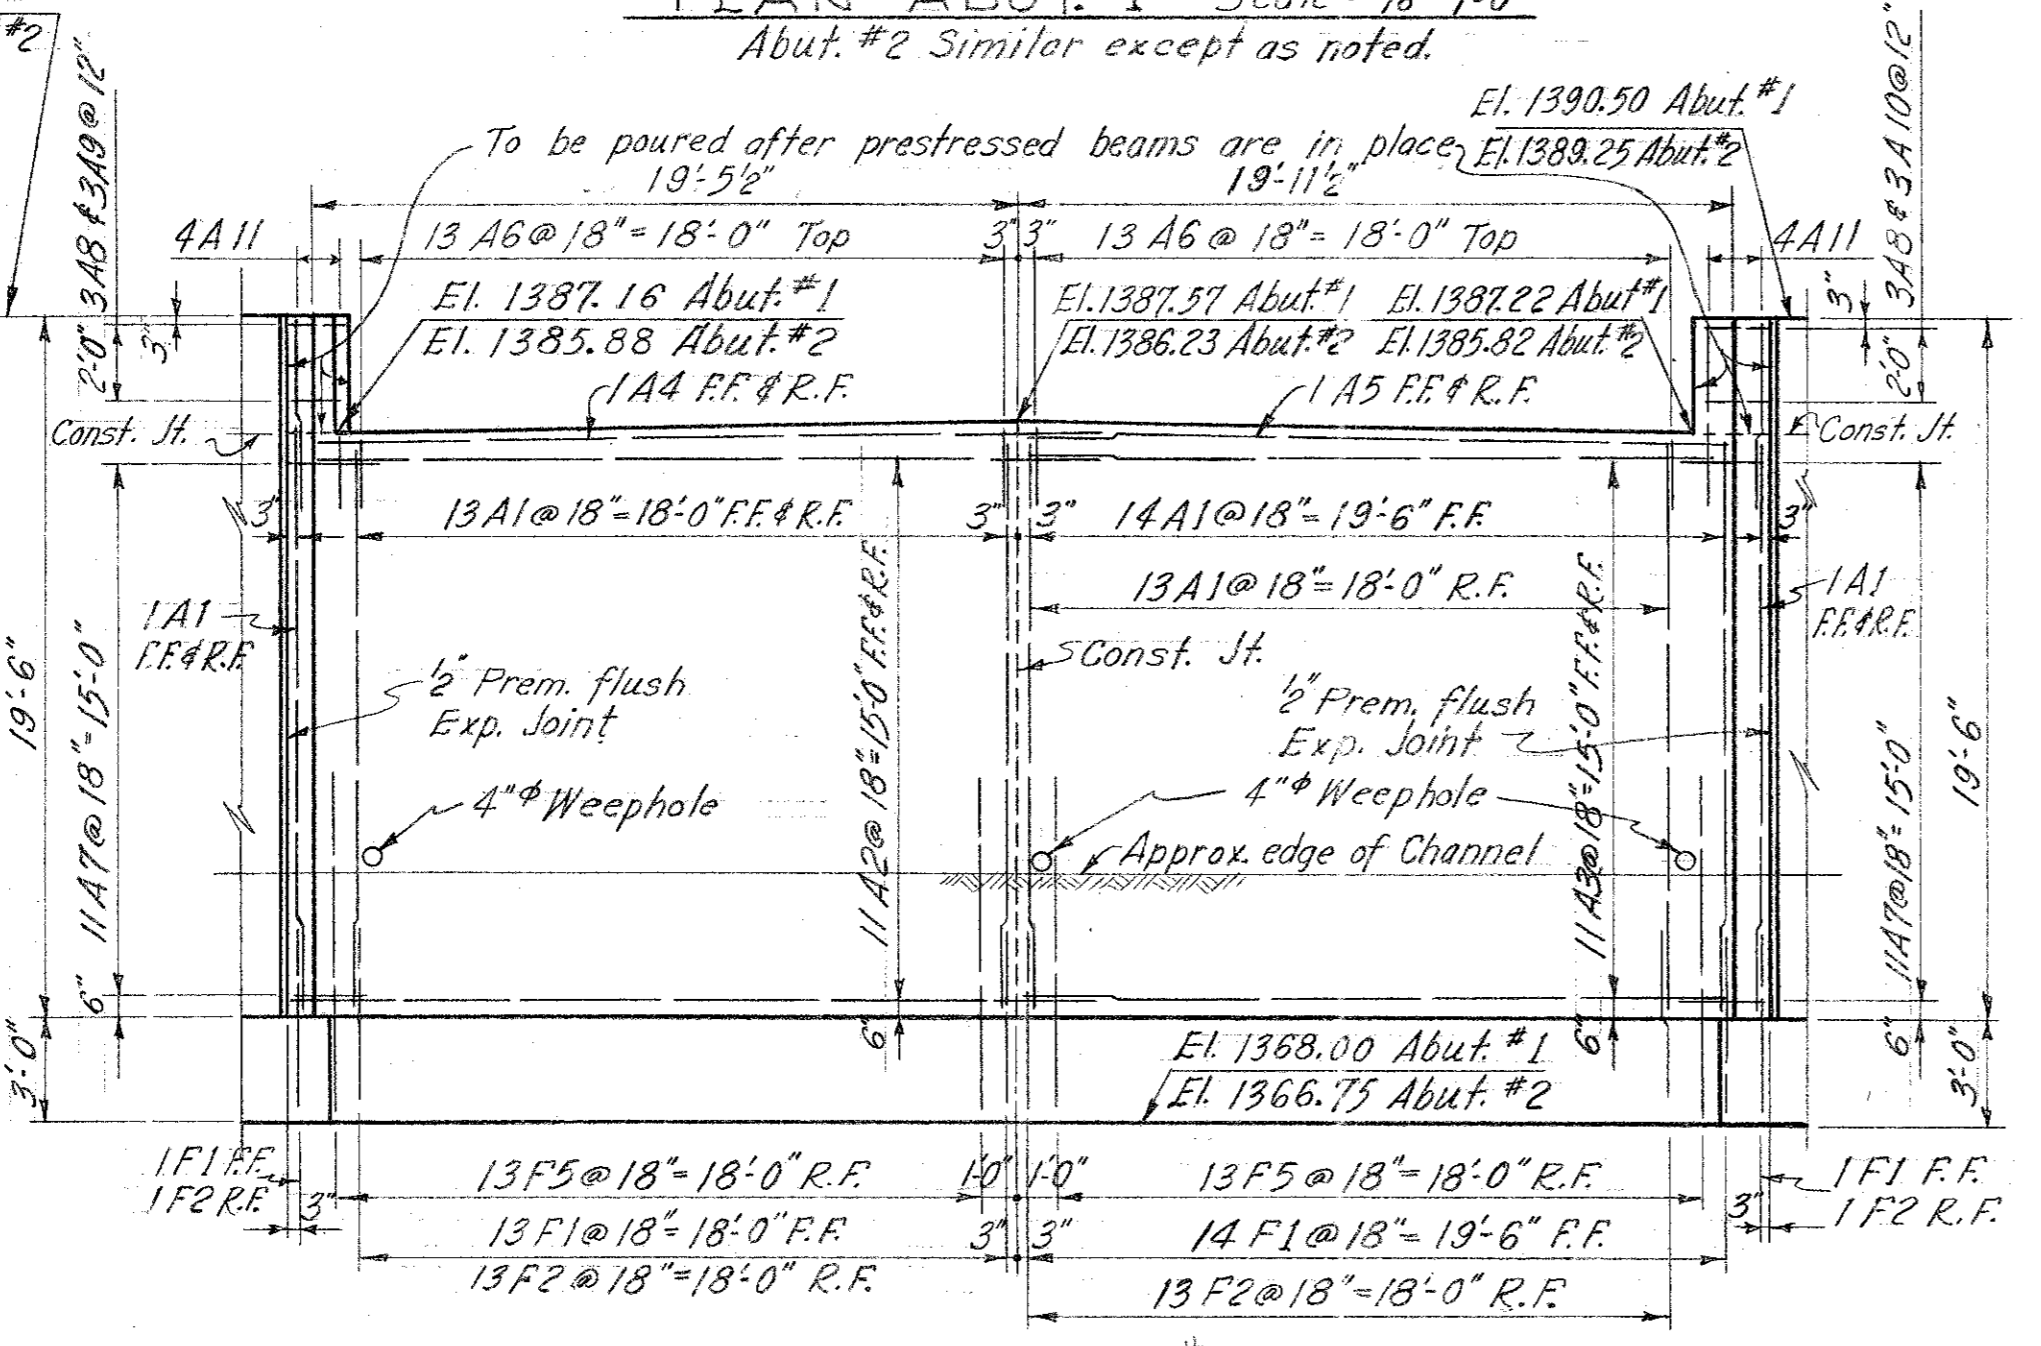 PLAN ABUT. 1 Scale
#2
Abut. #2 Similar except as noted.
El. 1390.50 Abut. #1
El. 1389.25 Abut. #2
To be poured after prestressed beams are in place
19'-5½"
19'-11½"
4A11
13 A6 @ 18" = 18'-0" Top
3"
3"
13 A6 @ 18" = 18'-0" Top
4A11
3A8 & 3A9 @ 12"
2'-0"
3"
3A8 & 3A10 @ 12"
2'-0"
3"
El. 1387.16 Abut. #1
El. 1385.88 Abut. #2
El. 1387.57 Abut. #1
El. 1386.23 Abut. #2
El. 1387.22 Abut #1
El. 1385.82 Abut. #2
1 A4 F.F. & R.F.
1 A5 F.F. & R.F.
Const. Jt.
Const. Jt.
3"
13 A1 @ 18" = 18'-0" F.F. & R.F.
3"
3"
14 A1 @ 18" = 19'-6" F.F.
3"
13 A1 @ 18" = 18'-0" R.F.
1 A1
F.F. & R.F.
1 A1
F.F. & R.F.
Const. Jt.
½" Prem. flush
Exp. Joint
½" Prem. flush
Exp. Joint
4"φ Weephole
4"φ Weephole
Approx. edge of Channel
19'-6"
3'-0"
11 A7 @ 18" = 15'-0"
6"
11 A2 @ 18" = 15'-0" F.F. & R.F.
6"
11 A3 @ 18" = 15'-0" F.F. & R.F.
6"
11 A7 @ 18" = 15'-0"
6"
19'-6"
3'-0"
El. 1368.00 Abut. #1
El. 1366.75 Abut. #2
1 F1 F.F.
1 F2 R.F.
3"
13 F5 @ 18" = 18'-0" R.F.
1'-0"
1'-0"
13 F5 @ 18" = 18'-0" R.F.
3"
1 F1 F.F.
1 F2 R.F.
13 F1 @ 18" = 18'-0" F.F.
3"
3"
14 F1 @ 18" = 19'-6" F.F.
13 F2 @ 18" = 18'-0" R.F.
13 F2 @ 18" = 18'-0" R.F.